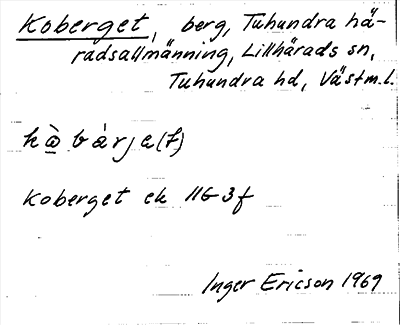 Koberget, berg, Tuhundra hä-
radsallmänning, Lillhärads sn,
Tuhundra hd, Västm.l.
kò̲bárja(t)
Koberget ek 11G3f
Inger Ericson 1969